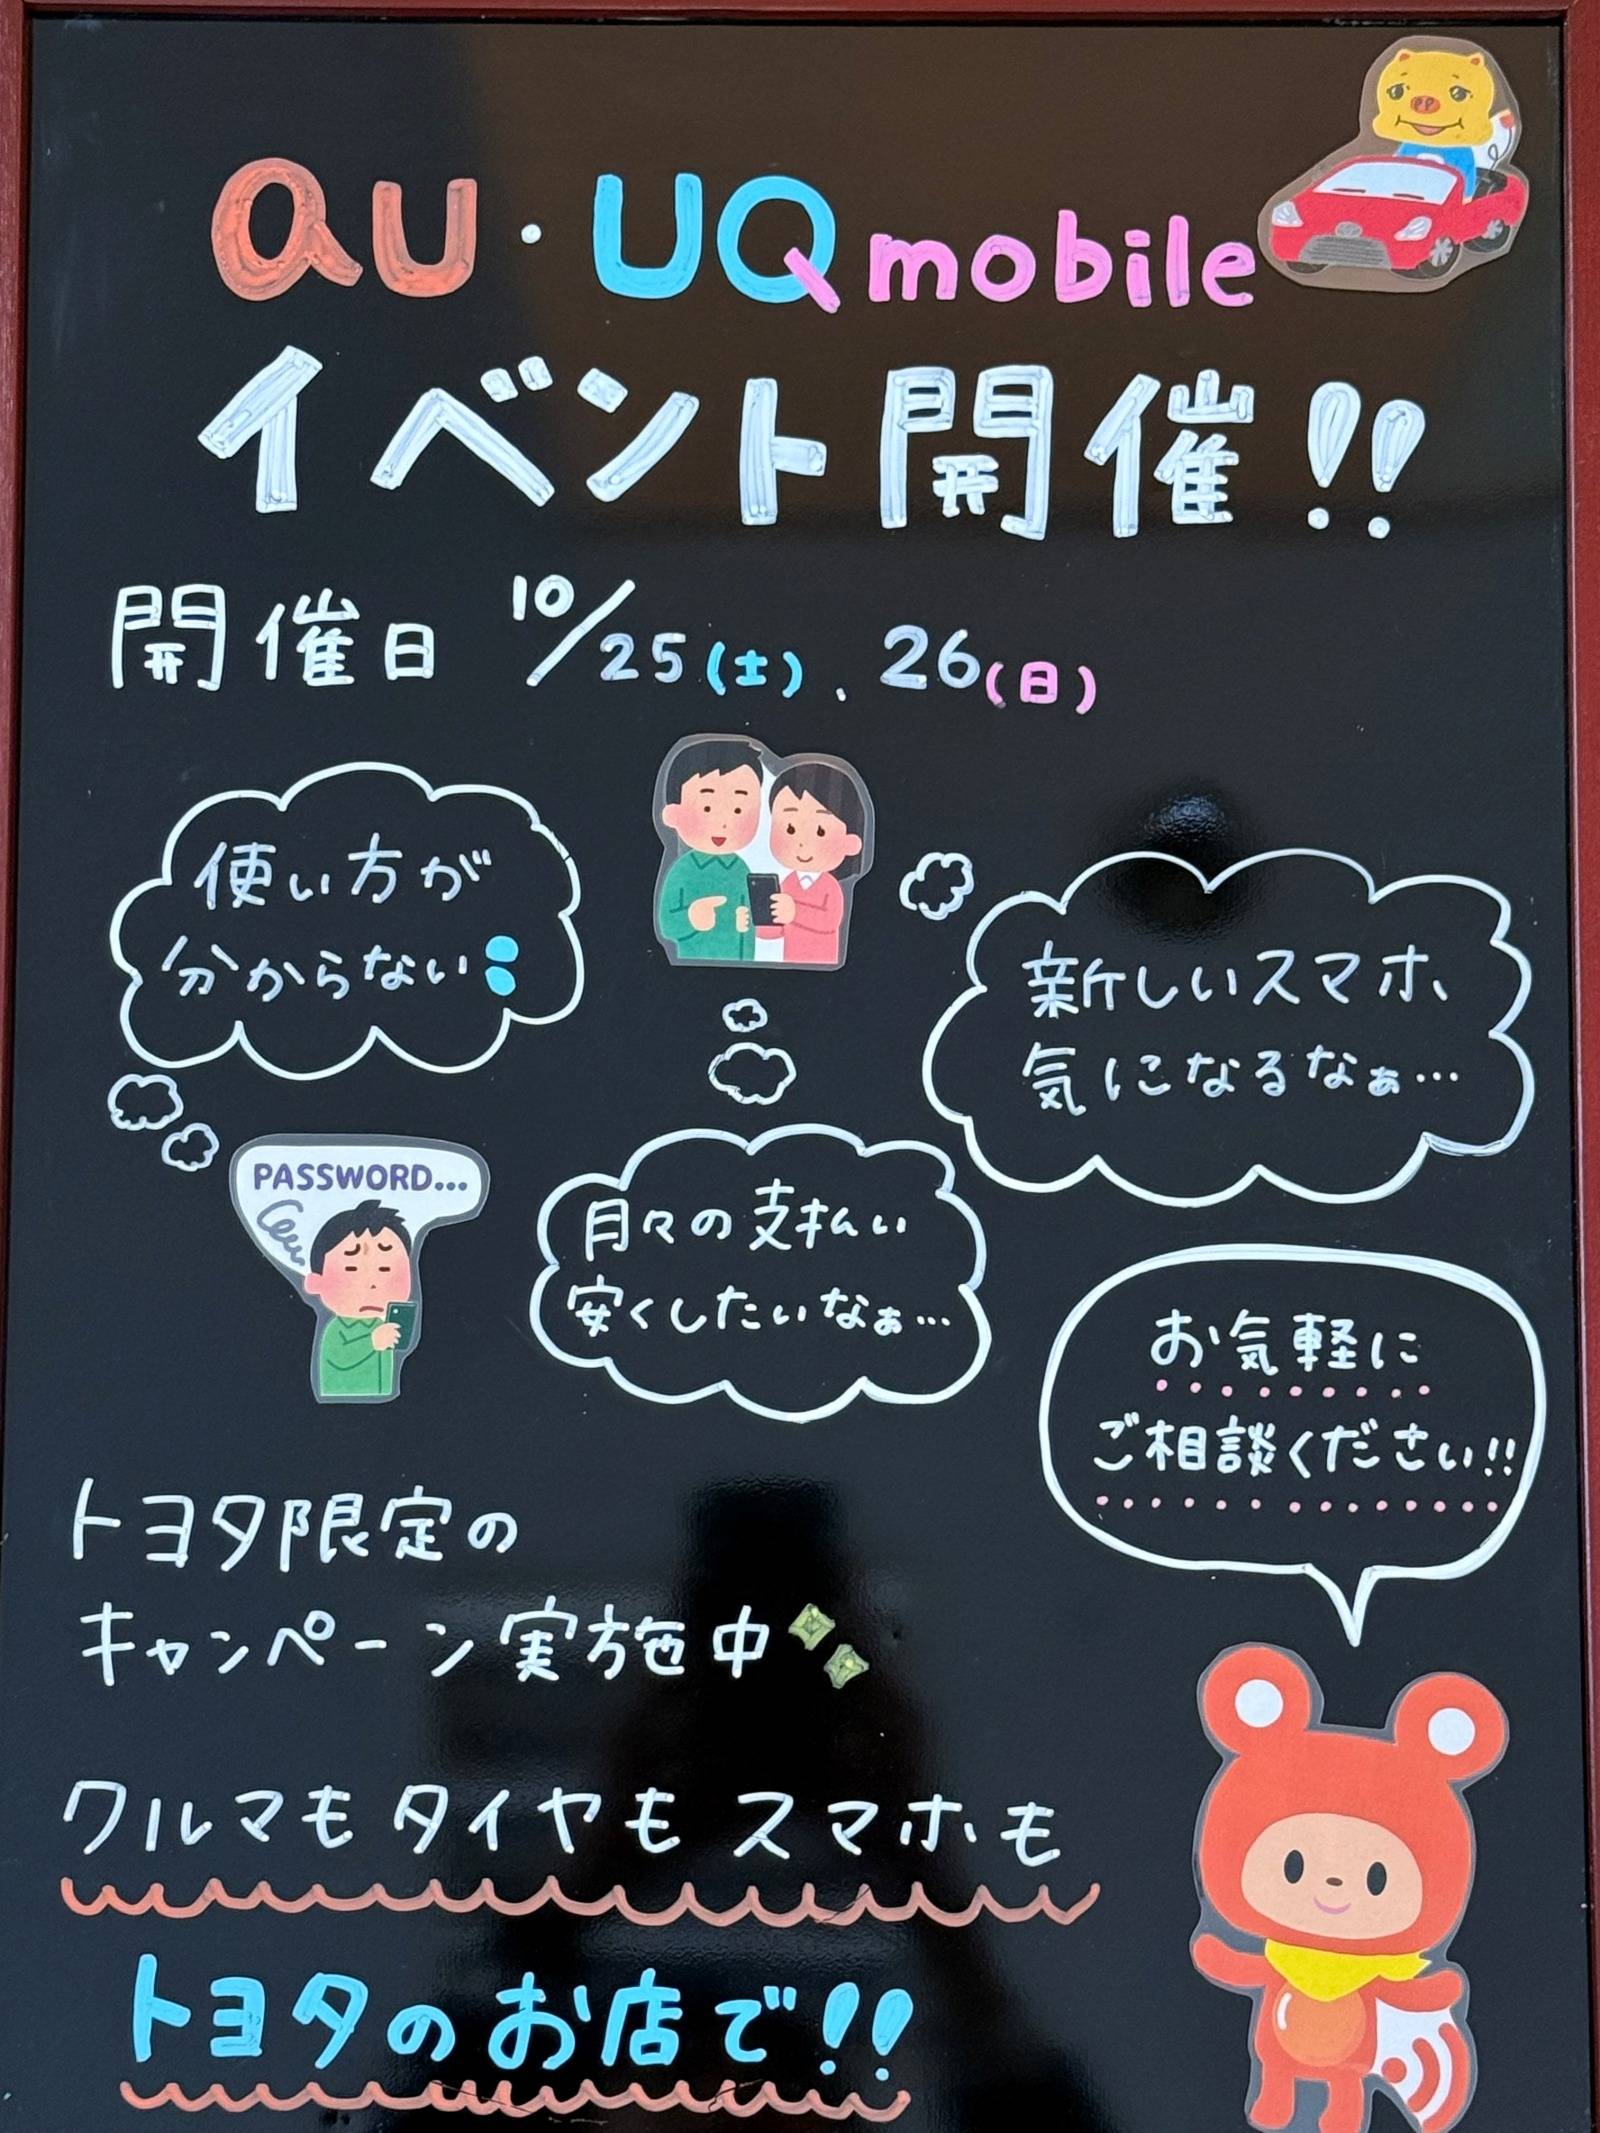 au・UQ mobile
イベント開催!!
開催日 10/25(土)、26(日)
使い方が
分からない
新しいスマホ
気になるなぁ…
PASSWORD...
月々の支払い
安くしたいなぁ…
お気軽に
ご相談ください!!
トヨタ限定の
キャンペーン実施中
クルマもタイヤもスマホも
トヨタのお店で!!